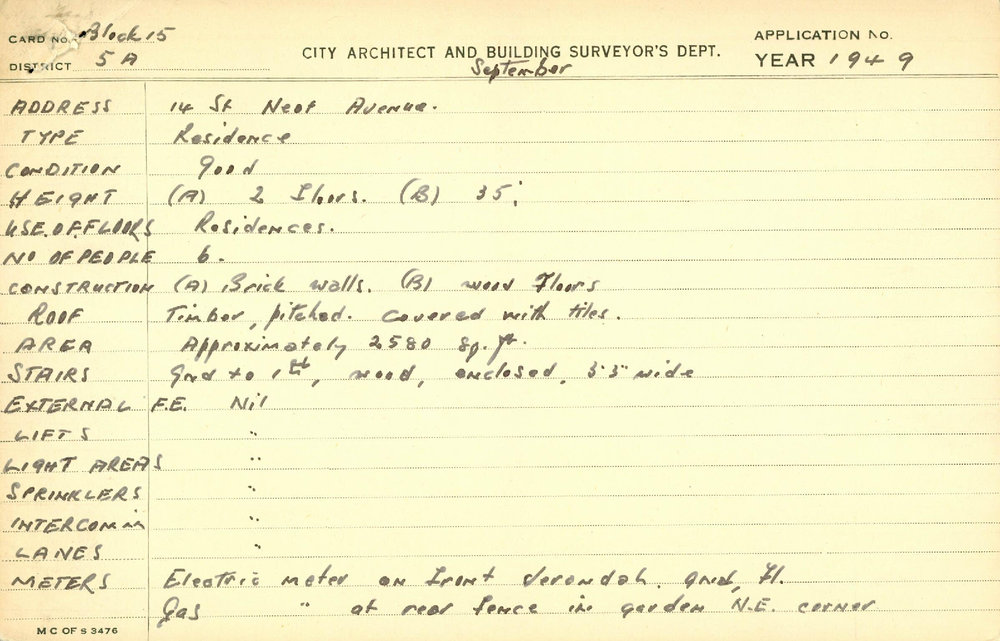 CARD No. Block 15
DISTRICT 5A
CITY ARCHITECT AND BUILDING SURVEYOR'S DEPT.
September
APPLICATION No.
YEAR 1949
ADDRESS 14 St Neot Avenue.
TYPE Residence
CONDITION good
HEIGHT (A) 2 Floors. (B) 35'
USE.OF.FLOORS Residences.
NO OF PEOPLE 6.
CONSTRUCTION (A) Brick walls. (B) wood Floors
ROOF Timber, pitched. covered with tiles.
AREA Approximately 2580 sq. ft.
STAIRS Gnd to 1st, wood, enclosed, 3'3" wide
EXTERNAL F.E. Nil
LIFTS "
LIGHT AREAS "
SPRINKLERS "
INTERCOM "
LANES "
METERS Electric meter on Front Verandah. gnd, Fl.
Gas " at rear fence in garden N.E. corner
M C OF S 3476